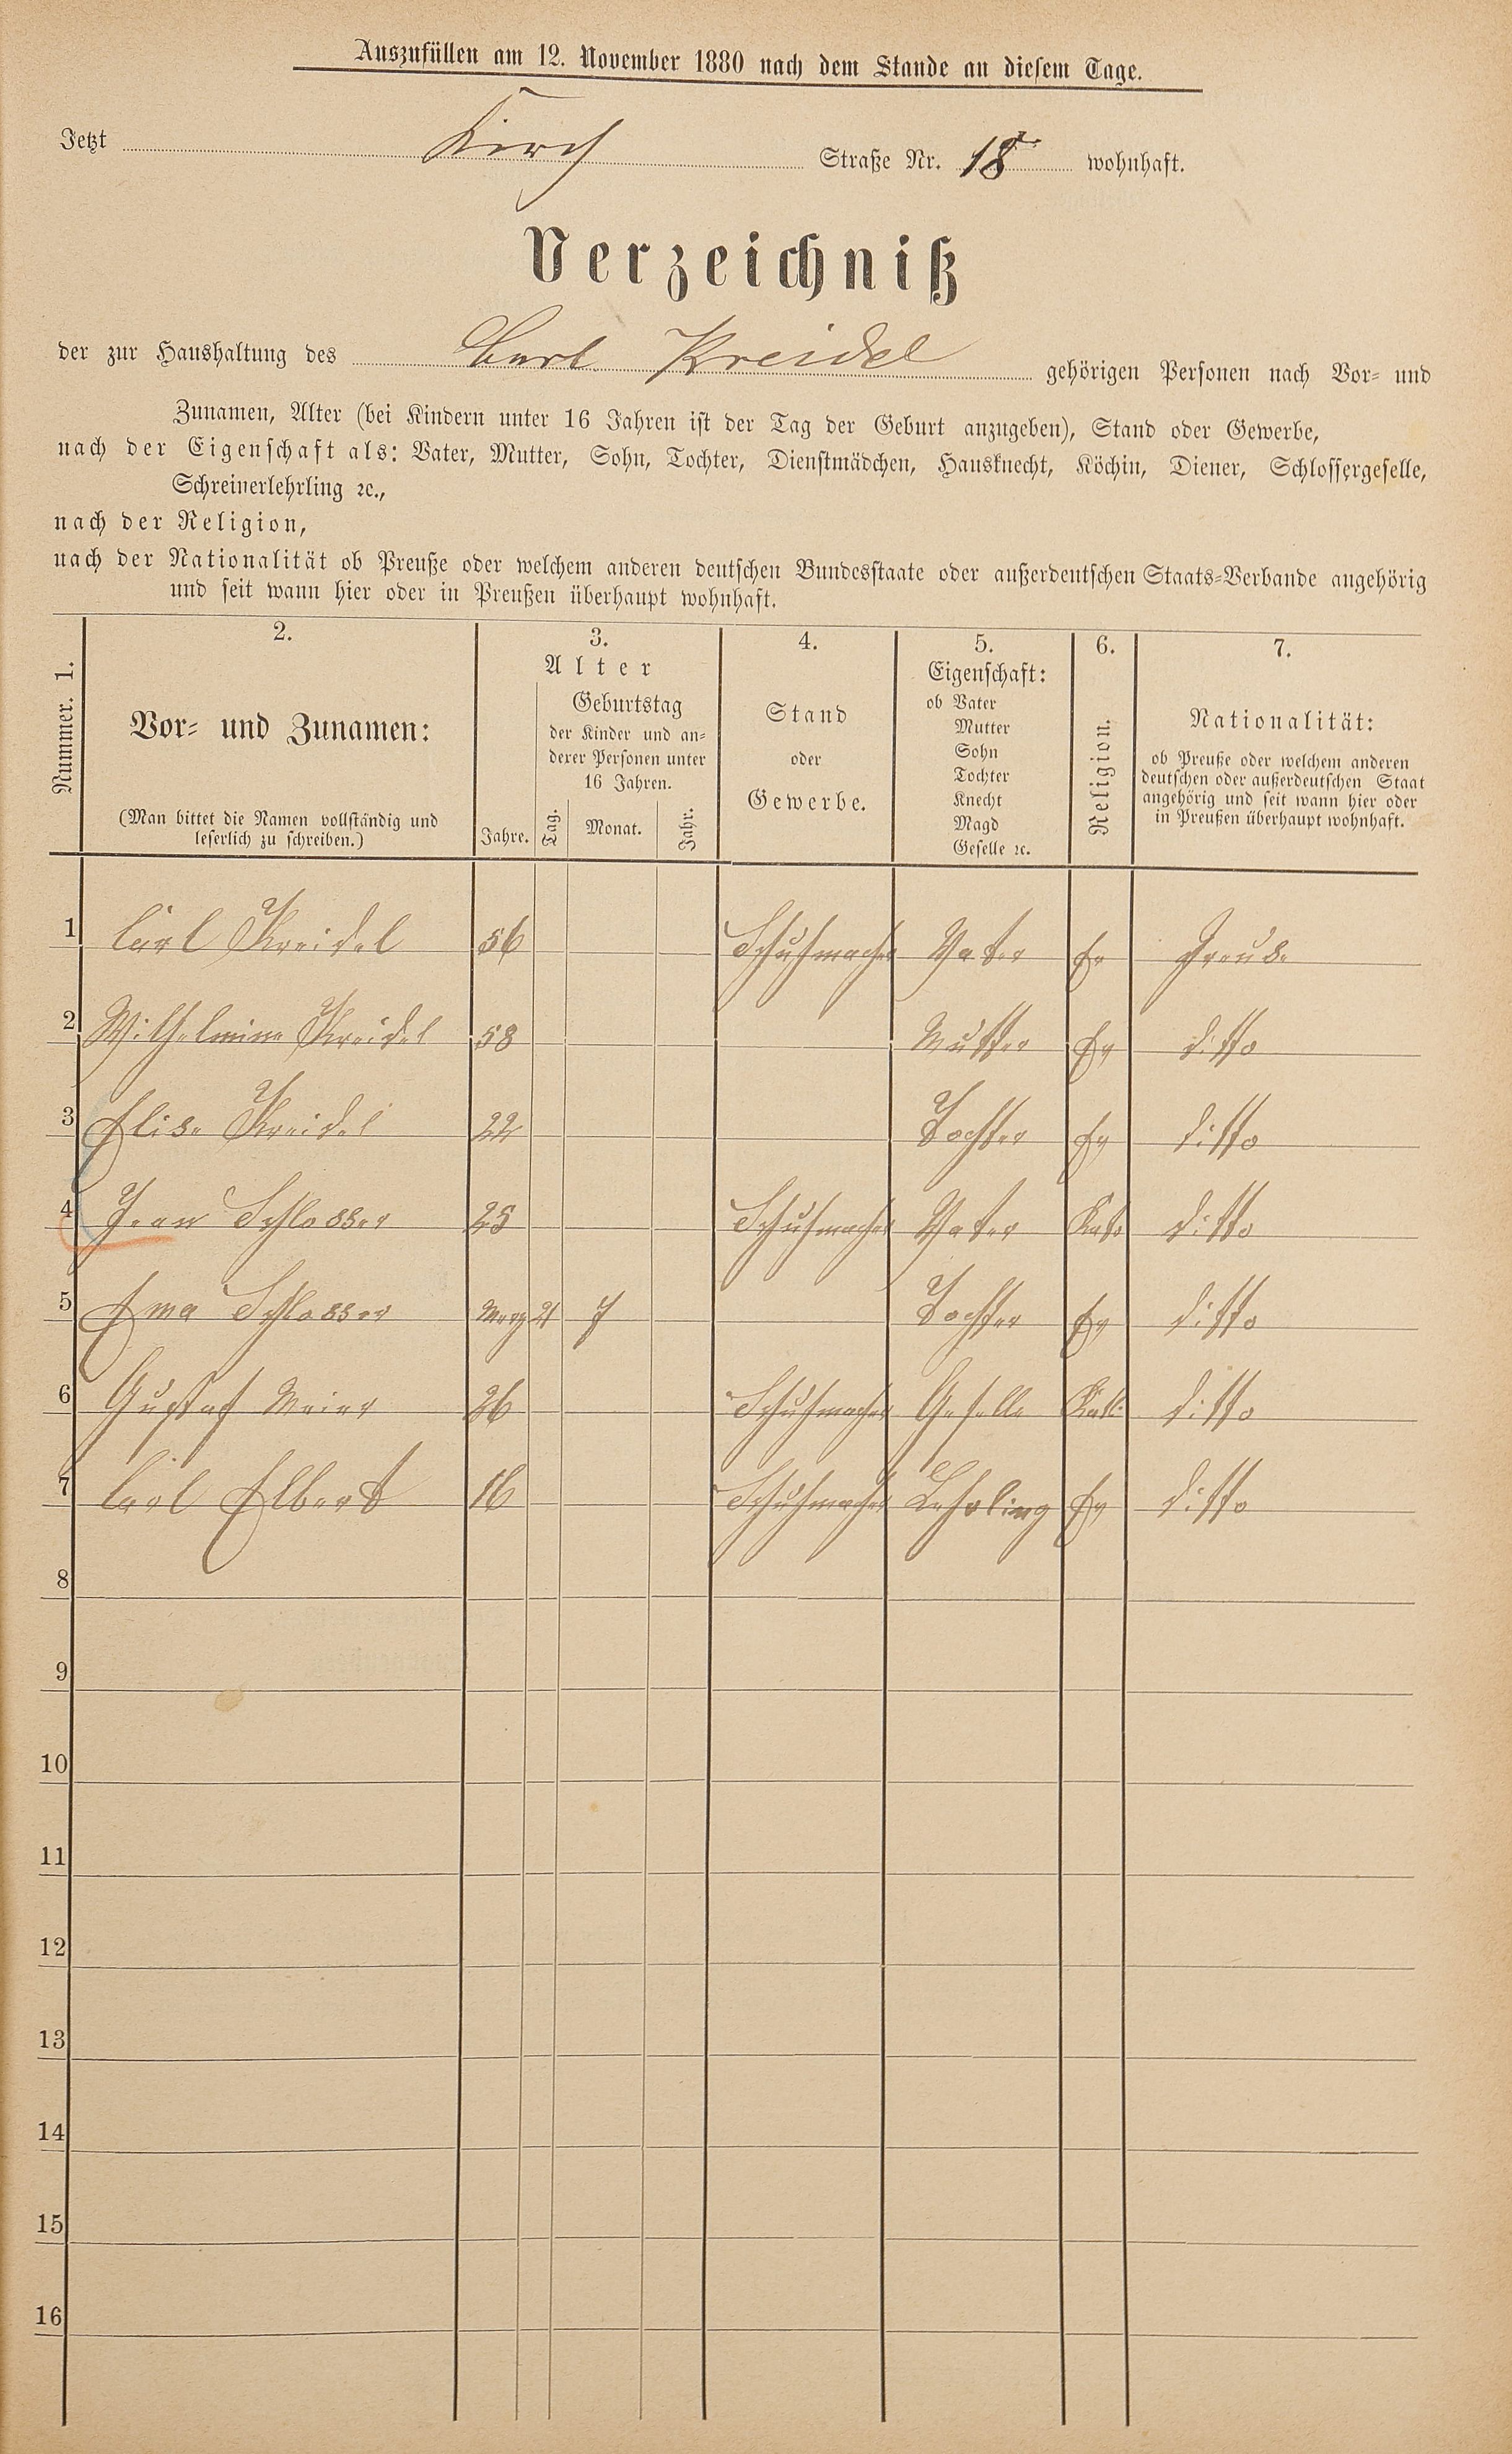 Auszufüllen am 12. November 1880 nach dem Stande an diesem Tage.
Jetzt Kirch Straße Nr. 18 wohnhaft.
Verzeichniß
der zur Haushaltung des Carl Kreidel gehörigen Personen nach Vor- und
Zunamen, Alter (bei Kindern unter 16 Jahren ist der Tag der Geburt anzugeben), Stand oder Gewerbe,
nach der Eigenschaft als: Vater, Mutter, Sohn, Tochter, Dienstmädchen, Hausknecht, Köchin, Diener, Schlossergeselle,
Schreinerlehrling ꝛc.,
nach der Religion,
nach der Nationalität ob Preuße oder welchem anderen deutschen Bundesstaate oder außerdeutschen Staats-Verbande angehörig
und seit wann hier oder in Preußen überhaupt wohnhaft.
Nummer. 1.
2.
Vor- und Zunamen:
(Man bittet die Namen vollständig und
leserlich zu schreiben.)
3.
Alter
Jahre.
Geburtstag
der Kinder und an-
derer Personen unter
16 Jahren.
Tag. Monat. Jahr.
4.
Stand
oder
Gewerbe.
5.
Eigenschaft:
ob Vater
Mutter
Sohn
Tochter
Knecht
Magd
Geselle ꝛc.
6.
Religion.
7.
Nationalität:
ob Preuße oder welchem anderen
deutschen oder außerdeutschen Staat
angehörig und seit wann hier oder
in Preußen überhaupt wohnhaft.
1 Carl Kreidel 56 Schuhmacher Vater Ev Preuse
2 Wilhelmine Kreidel 58 Mutter Ev ditto
3 Elise Kreidel 22 Tochter Ev ditto
4 Jean Schlosser 25 Schuhmacher Vater Kato ditto
5 Ema Schlosser 21 7 Tochter Ev ditto
6 Gustaf Meier 26 Schuhmacher Geselle Kath ditto
7 Carl Elbert 16 Schuhmacher Lehrling Ev ditto
8
9
10
11
12
13
14
15
16